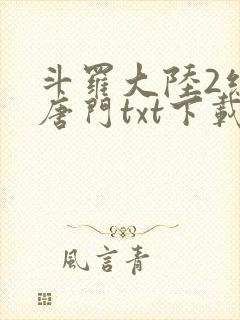 斗羅大陸2
唐門txt下載
風言青